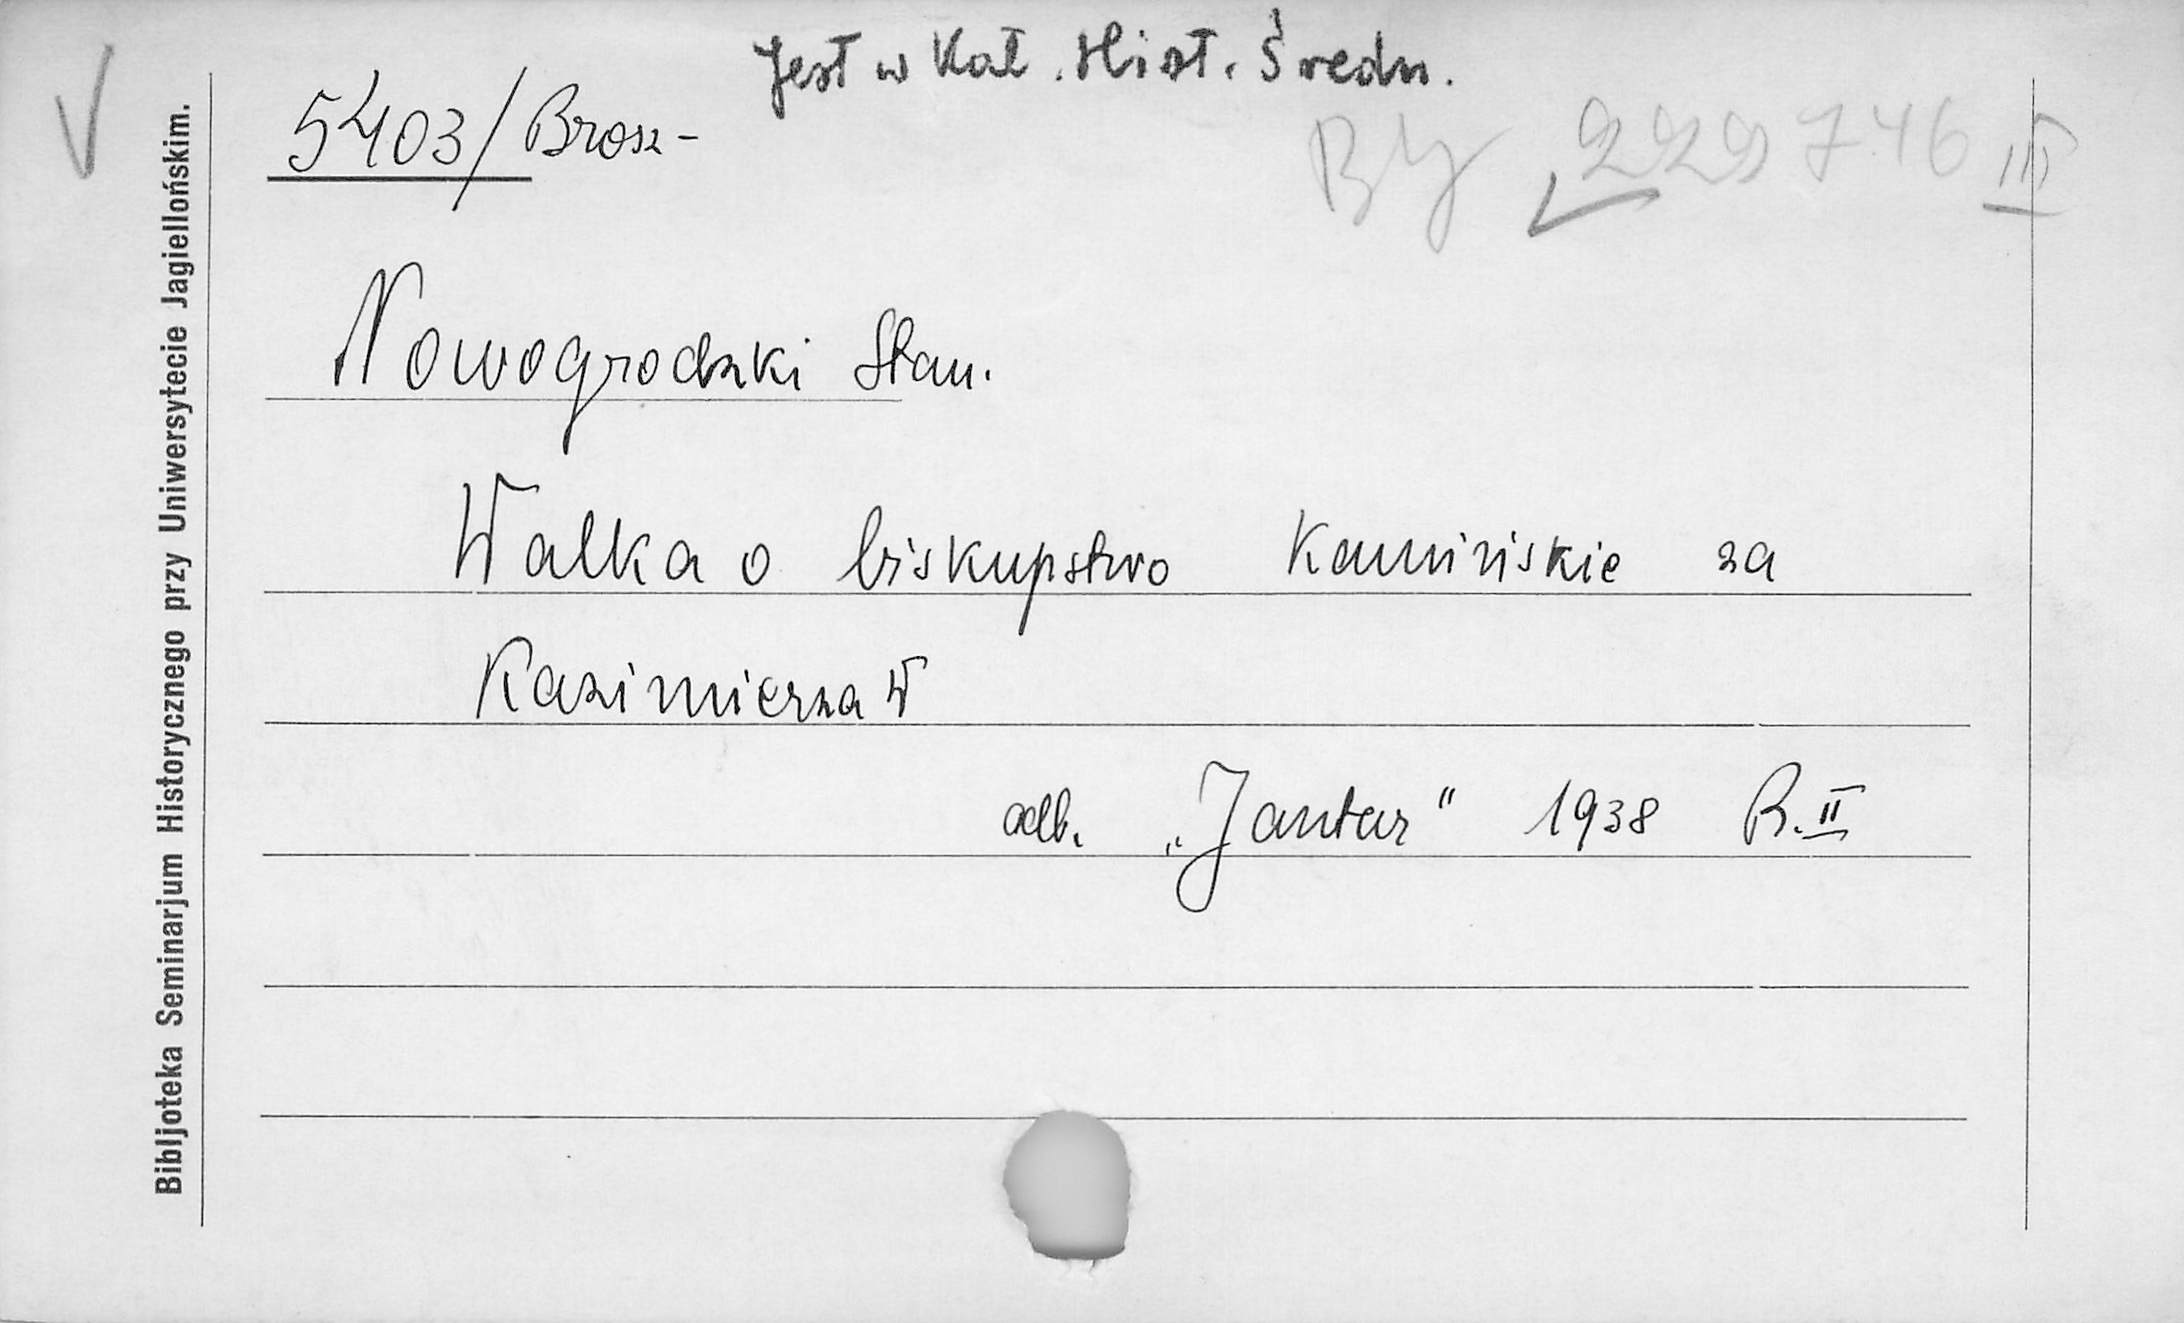 Jest w Kat. Hist. Średn.
5403/Brosz-
BJ 229746 III
Nowogrodzki Stan.
Walka o biskupstwo Kamińskie za
Kazimierza W
odb. „Jantar" 1938 R. II
Bibljoteka Seminarjum Historycznego przy Uniwersytecie Jagiellońskim.